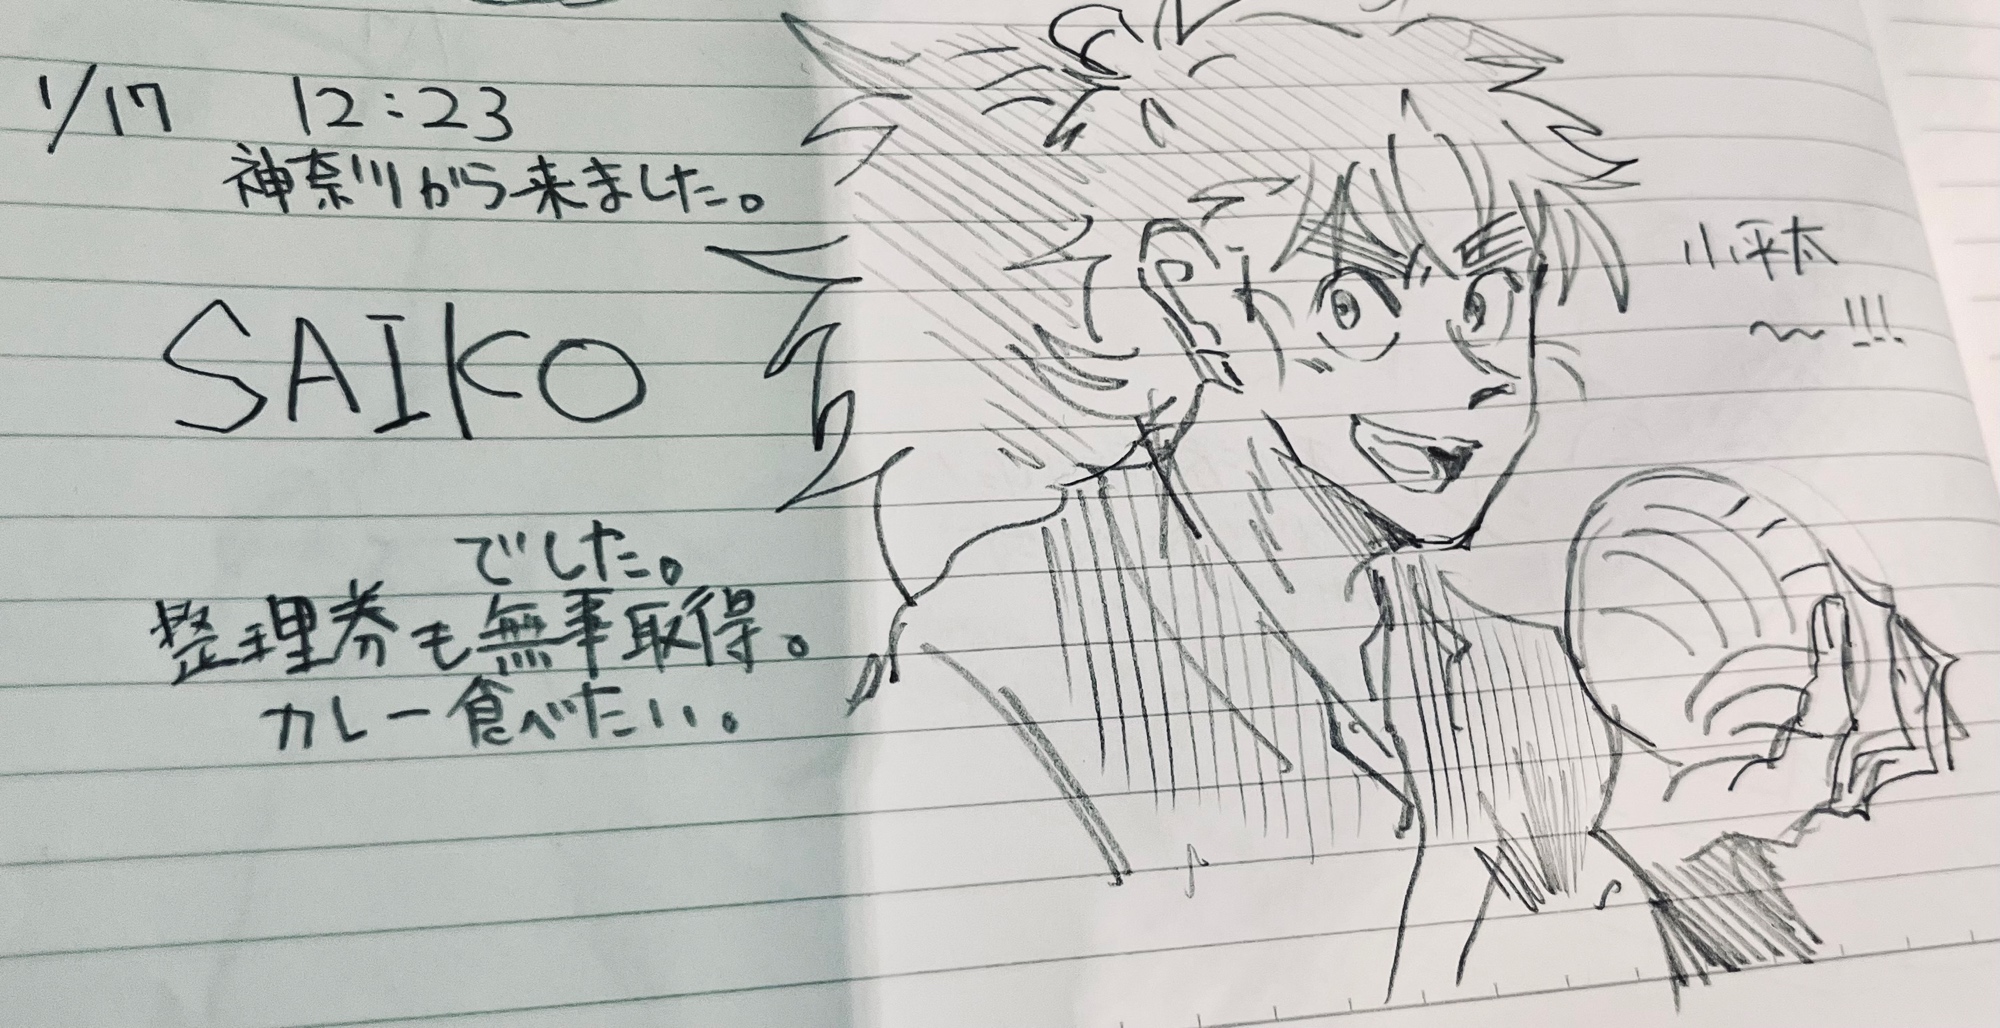 1/17 12:23
神奈川から来ました。
SAIKO
でした。
整理券も無事取得。
カレー食べたい。
小平太
〜!!!